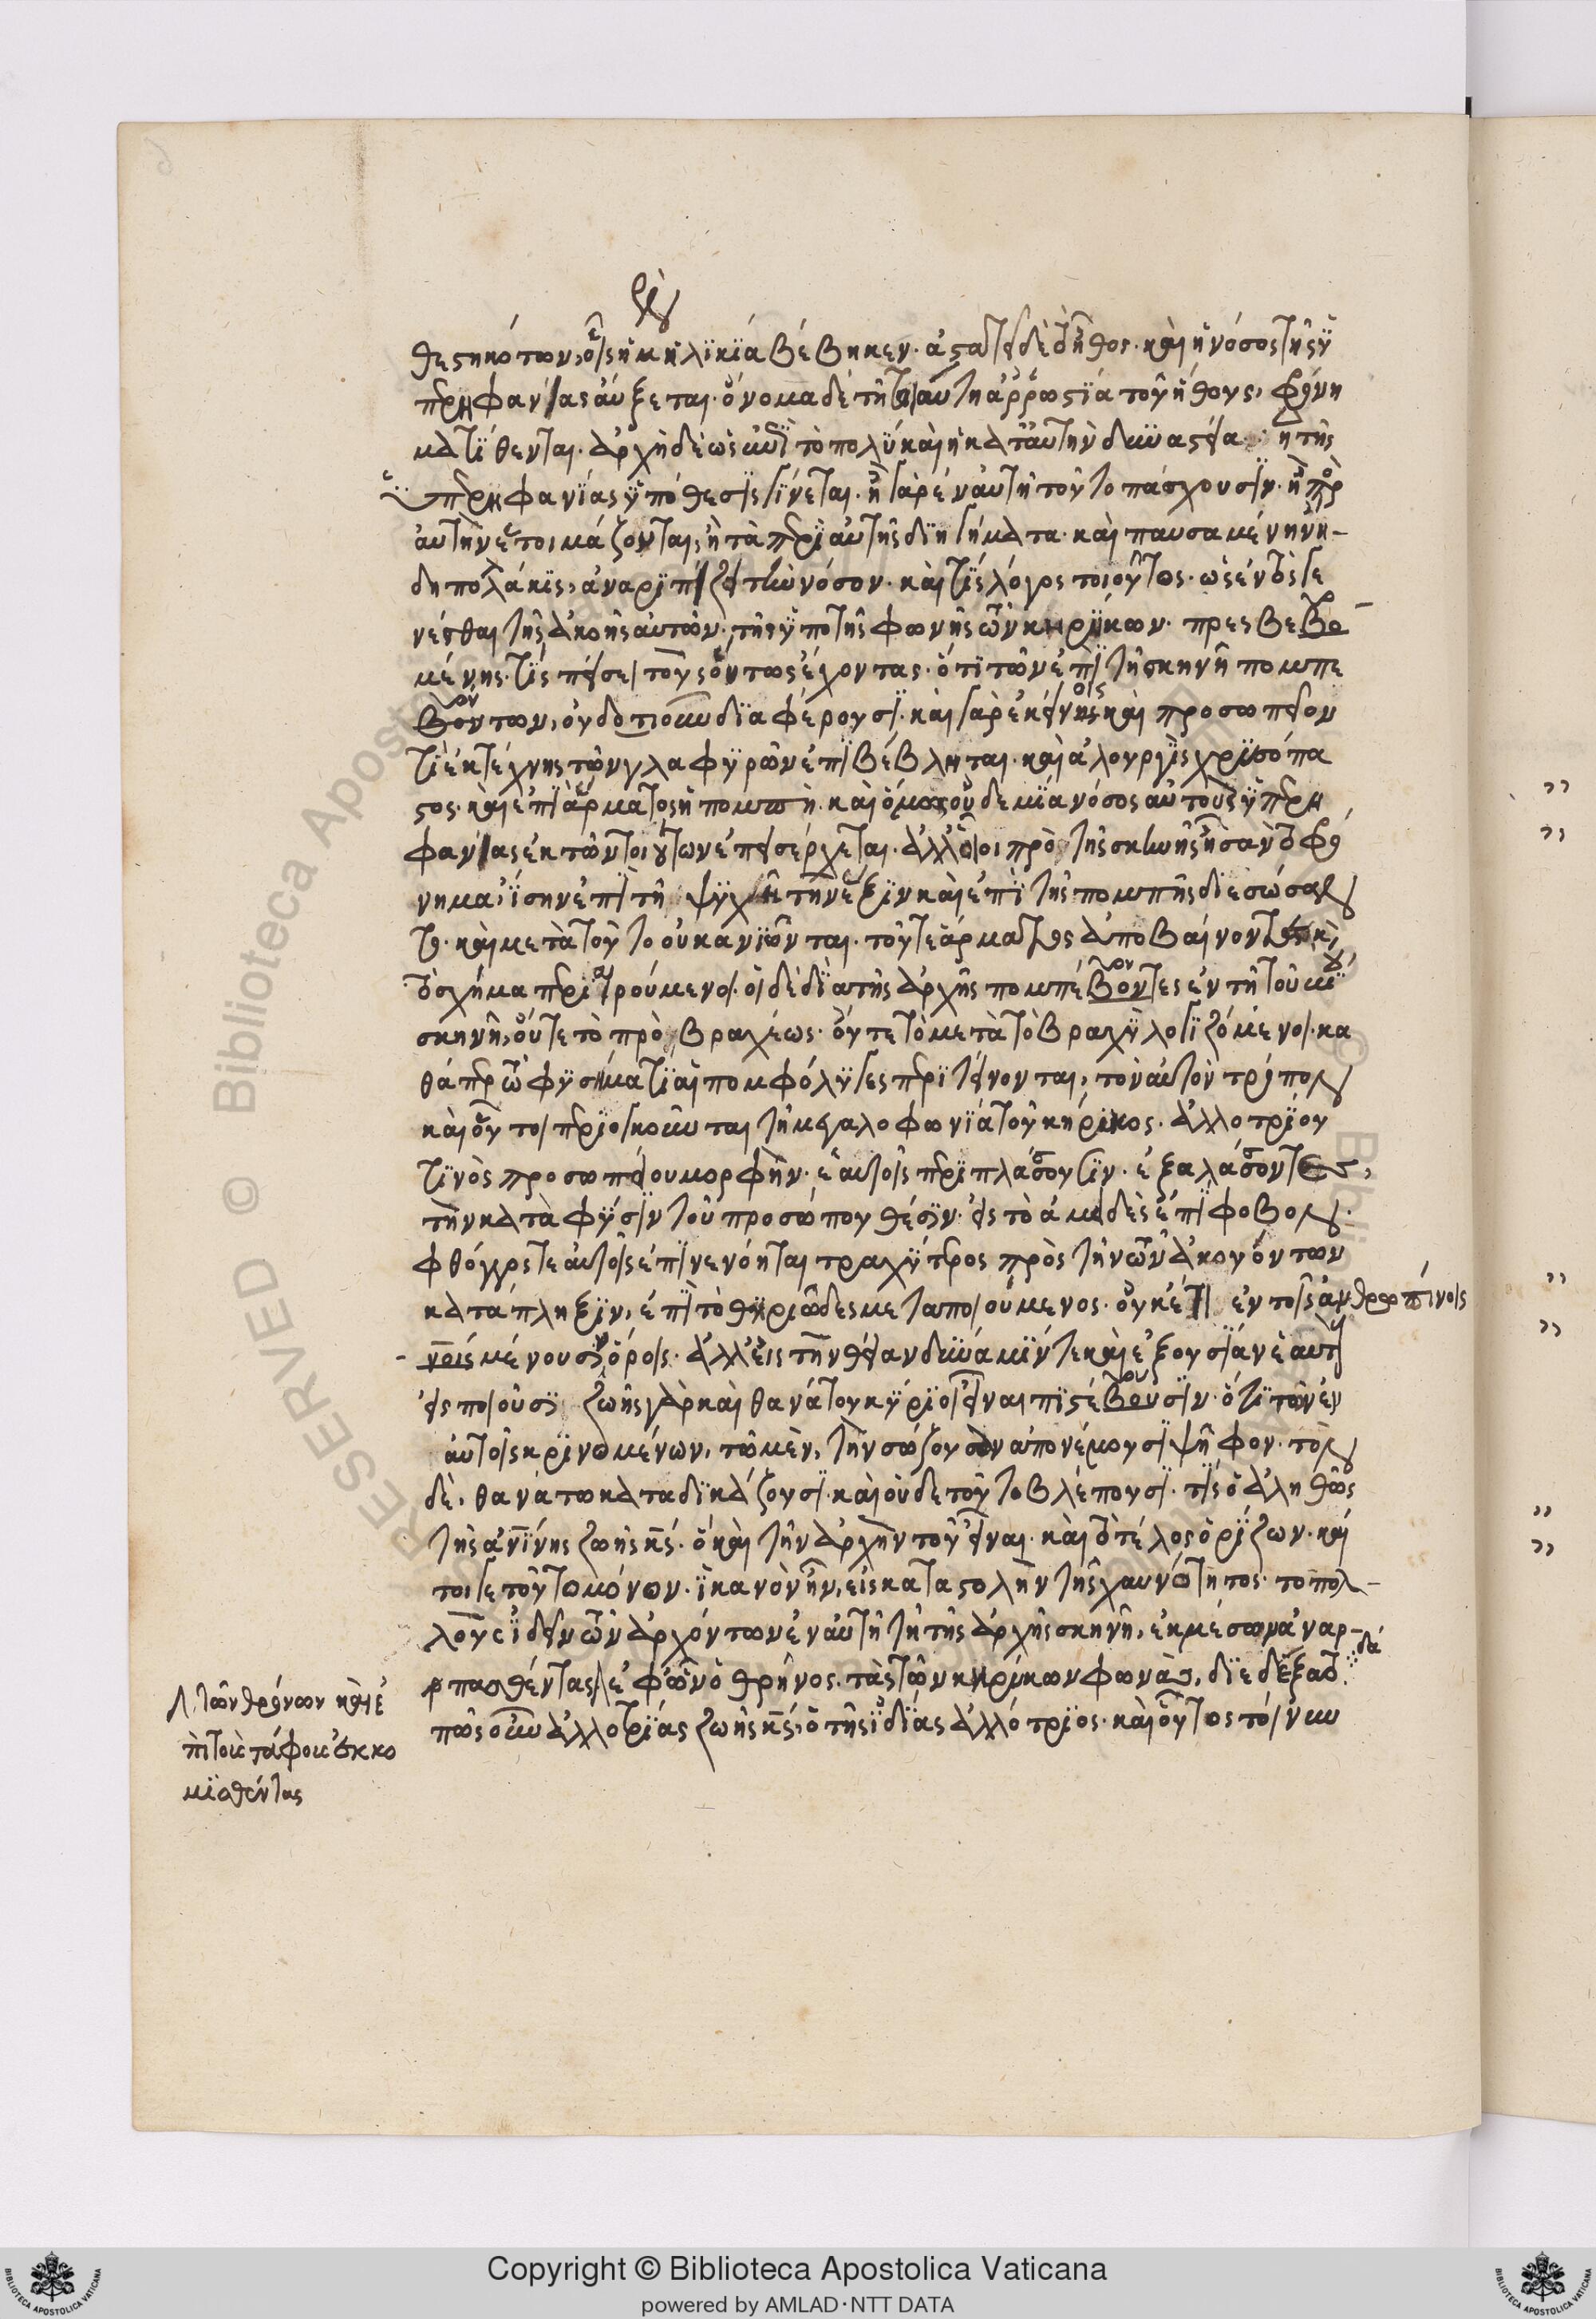 θεστηκότων, οἷς ἡ μὲν ἡλϊκία βέβηκεν· ἀστατεῖ δὲ τὸ ἦθος· καὶ ἡ νόσος τῆς ὑ
περηφανίας αὔξεται· ὄνομα δὲ τῆ τοιαύτη ἀρρωστία τοῦ ἤθους, φρόνη
μα τίθενται· ἀρχὴ δὲ ὡς ἐπὶ τὸ πολὺ καὶ ἡ κατ' αὐτὴν δυναστεία ἡ τῆς
ὑπερηφανίας ὑπόθεσις γίνεται· ἢ γὰρ ἐν αὐτῆ τοῦτο πάσχουσιν· ἢ πρὸς
αὐτὴν ἑτοιμάζονται, ἢ τὰ περὶ αὐτῆς διηγήματα· καὶ παυσαμένην ἤ-
δη πολλάκις, ἀναριπίζει τὴν νόσον· καὶ τίς λόγος τοιοῦτος· ὡς ἐντὸς γε
νέσθαι τῆς ἀκοῆς αὐτῶν· τῆς ὑπὸ τῆς φωνῆς τῶν κηρύκων· πρεσβεβο
μένης· τίς πείσει τοὺς οὕτως ἔχοντας· ὅτι τῶν ἐπὶ τῆ σκηνῆ πομπε
βόντων, οὐδοτιοῦν διαφέρουσι· καὶ γὰρ ἐκείνοις καὶ προσωπεῖον
τι ἐκ τέχνης τῶν γλαφυρῶν ἐπιβέβληται· καὶ ἁλουργὶς χρυσόπα
στος· καὶ ἐπὶ ἅρματος ἡ πομπὴ· καὶ ὅμως οὐδεμία νόσος αὐτοὺς ὑπερη
φανίας ἐκ τῶν τοιούτων ἐπεισέρχεται· ἀλλ' οἷοι πρὸ τῆς σκηνῆς ἦσαν τὸ φρό
νημα, ἴσην ἐπὶ τῆ ψυχῆ τὴν ἕξιν καὶ ἐπὶ τῆς πομπῆς διεσώσαν
το· καὶ μετὰ τοῦτο οὐκ ἀνιῶνται· τοῦτε ἅρματος ἀποβαίνοντες καὶ
τὸ σχῆμα περιαιρούμενοι· οἱ δὲ διὰ τῆς ἀρχῆς πομπέβοντες ἐν τῆ τοῦ βίου
σκηνῆ, οὔτε τὸ πρὸ βραχέως· οὔτε τὸ μετὰ τὸ βραχὺ λογιζόμενοι· κα
θάπερ τῶ φυσήματι αἱ πομφόλυγες περιτείνονται, τὸν αὐτὸν τρόπον
καὶ οὗτοι περιογκοῦνται τῆ μεγαλοφωνία τοῦ κήρυκος· ἀλλοτρίου
τινὸς προσωπείου μορφὴν· ἑαυτοῖς περιπλάσσουσιν· ἐξαλάσσοντες,
τὴν κατὰ φύσιν τοῦ προσώπου θέσιν· εἰς τὸ ἀμειδὲς ἐπίφοβον·
φθόγγος τε αὐτοῖς ἐπινενόηται τραχύτερος πρὸς τὴν τῶν ἀκουόντων
κατάπληξιν, ἐπὶ τὸ θηριῶδες μεταποιούμενος· οὐκέτι ἐν τοῖς ἀνθρωπίνοις
μένουσιν ὅροις· ἀλλ' εἰς τὴν θείαν δύναμίν τε καὶ ἐξουσίαν ἑαυτοὺς
εἰσποιοῦσι ζωῆς γὰρ καὶ θανάτου κύριοι εἶναι πιστέβουσιν· ὅτι τῶν ἐν
αὐτοῖς κρινομένων, τῶ μὲν, τὴν σώζουσαν ἀπονέμουσι ψῆφον· τὸν
δὲ, θανάτω καταδικάζουσι· καὶ οὐδὲ τοῦτο βλέπουσι· τίς ὁ ἀληθῶς
τῆς ἀνίνης ζωῆς κς· ὁ καὶ τὴν ἀρχὴν τοῦ εἶναι· καὶ τὸ τέλος ὁρίζων· καί
τοιγε τοῦτο μόνον· ἱκανὸν ἦν, εἰς καταστολὴν τῆς χαυνότητος· τὸ πολ-
λοὺς ἰδεῖν τῶν ἀρχόντων ἐν αὐτῆ τῆ τῆς ἀρχῆς σκηνῆ, ἐκ μέσων ἀναρ-
ρπασθέντας, ἐφ' ὧν ὁ θρῆνος· τὰς τῶν κηρύκων φωνὰς, διεδέξατο
πῶς οὖν ἀλλοτρίας ζωῆς κς, ὁ τῆς ἰδίας ἀλλότριος· καὶ οὗτος τοίνυν
λ. τῶν θρόνων καὶ ἐ
πὶ τοὺς τάφους ἐκκο
μισθέντας
Copyright © Biblioteca Apostolica Vaticana
powered by AMLAD·NTT DATA
RESERVED © Biblioteca Apostolica
© Bibl